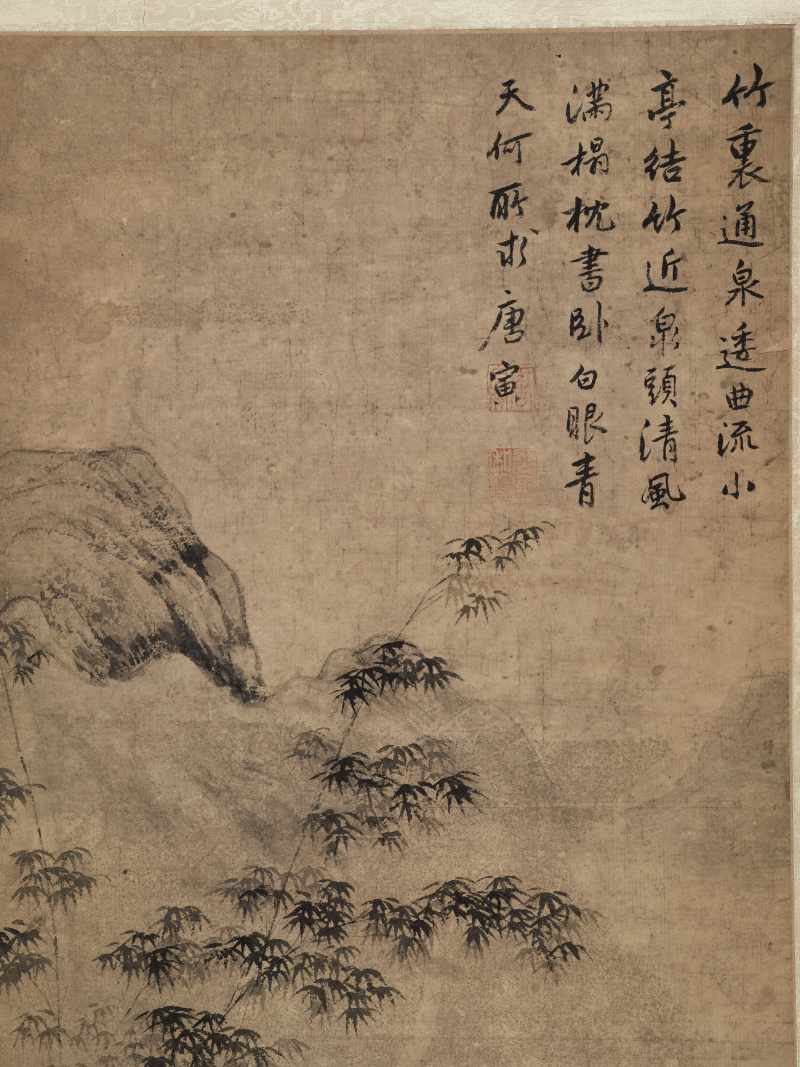 竹裏通泉透曲流小
亭結竹近泉頭清風
滿榻枕書卧白眼青
天何所求唐寅